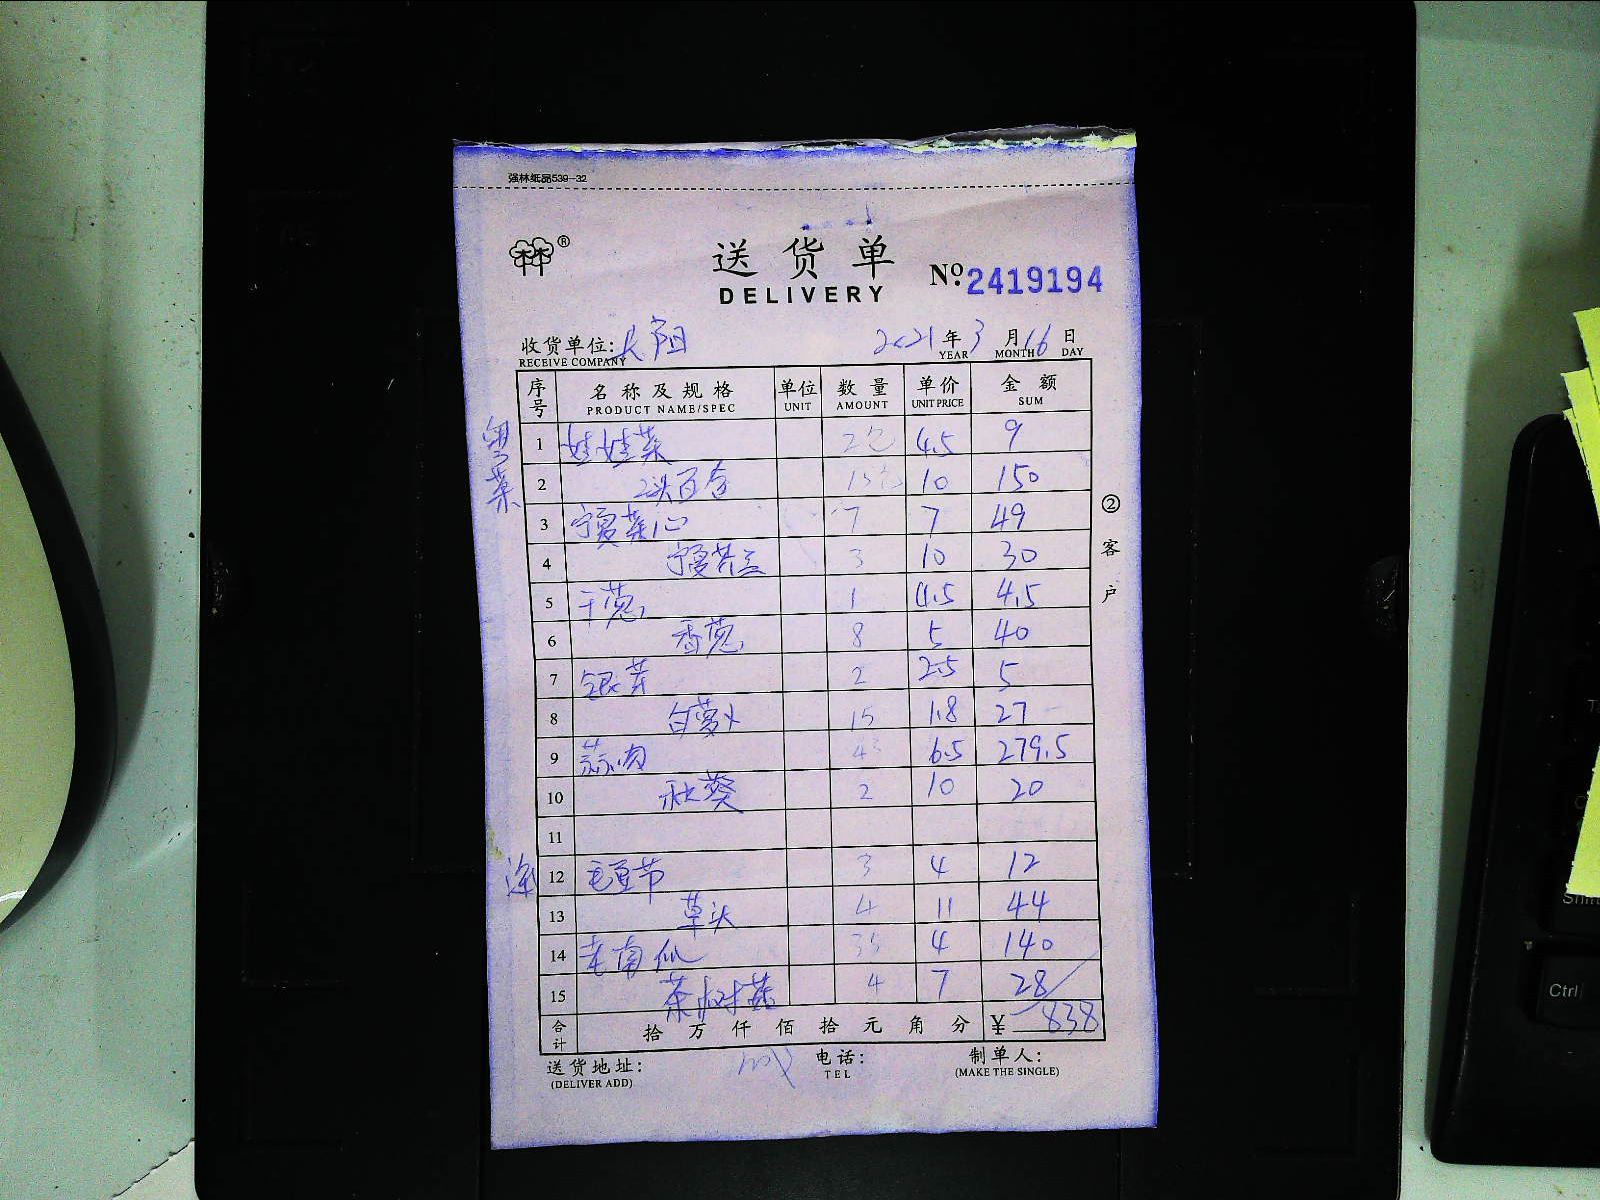 强林纸品539-32
送货单
DELIVERY
No. 2419194
收货单位: 阳 2021年3月16日
RECEIVE COMPANY YEAR MONTH DAY
序号 名称及规格 单位 数量 单价 金额
PRODUCT NAME/SPEC UNIT AMOUNT UNIT PRICE SUM
粤菜
1 娃娃菜 2包 4.5 9
2 2头百合 15包 10 150
3 宁夏菜心 7 7 49
4 宁夏芥兰 3 10 30
5 干葱 1 4.5 4.5
6 香葱 8 5 40
7 银芽 2 2.5 5
8 白萝卜 15 1.8 27
9 蒜肉 43 6.5 279.5
10 秋葵 2 10 20
11
12 毛豆节 3 4 12
13 草头 4 11 44
14 老南瓜 35 4 140
15 茶树菇 4 7 28
合计 拾万仟佰拾元角分 ¥ 838
送货地址: 电话: 制单人:
(DELIVER ADD) TEL (MAKE THE SINGLE)
②客户
Ctrl